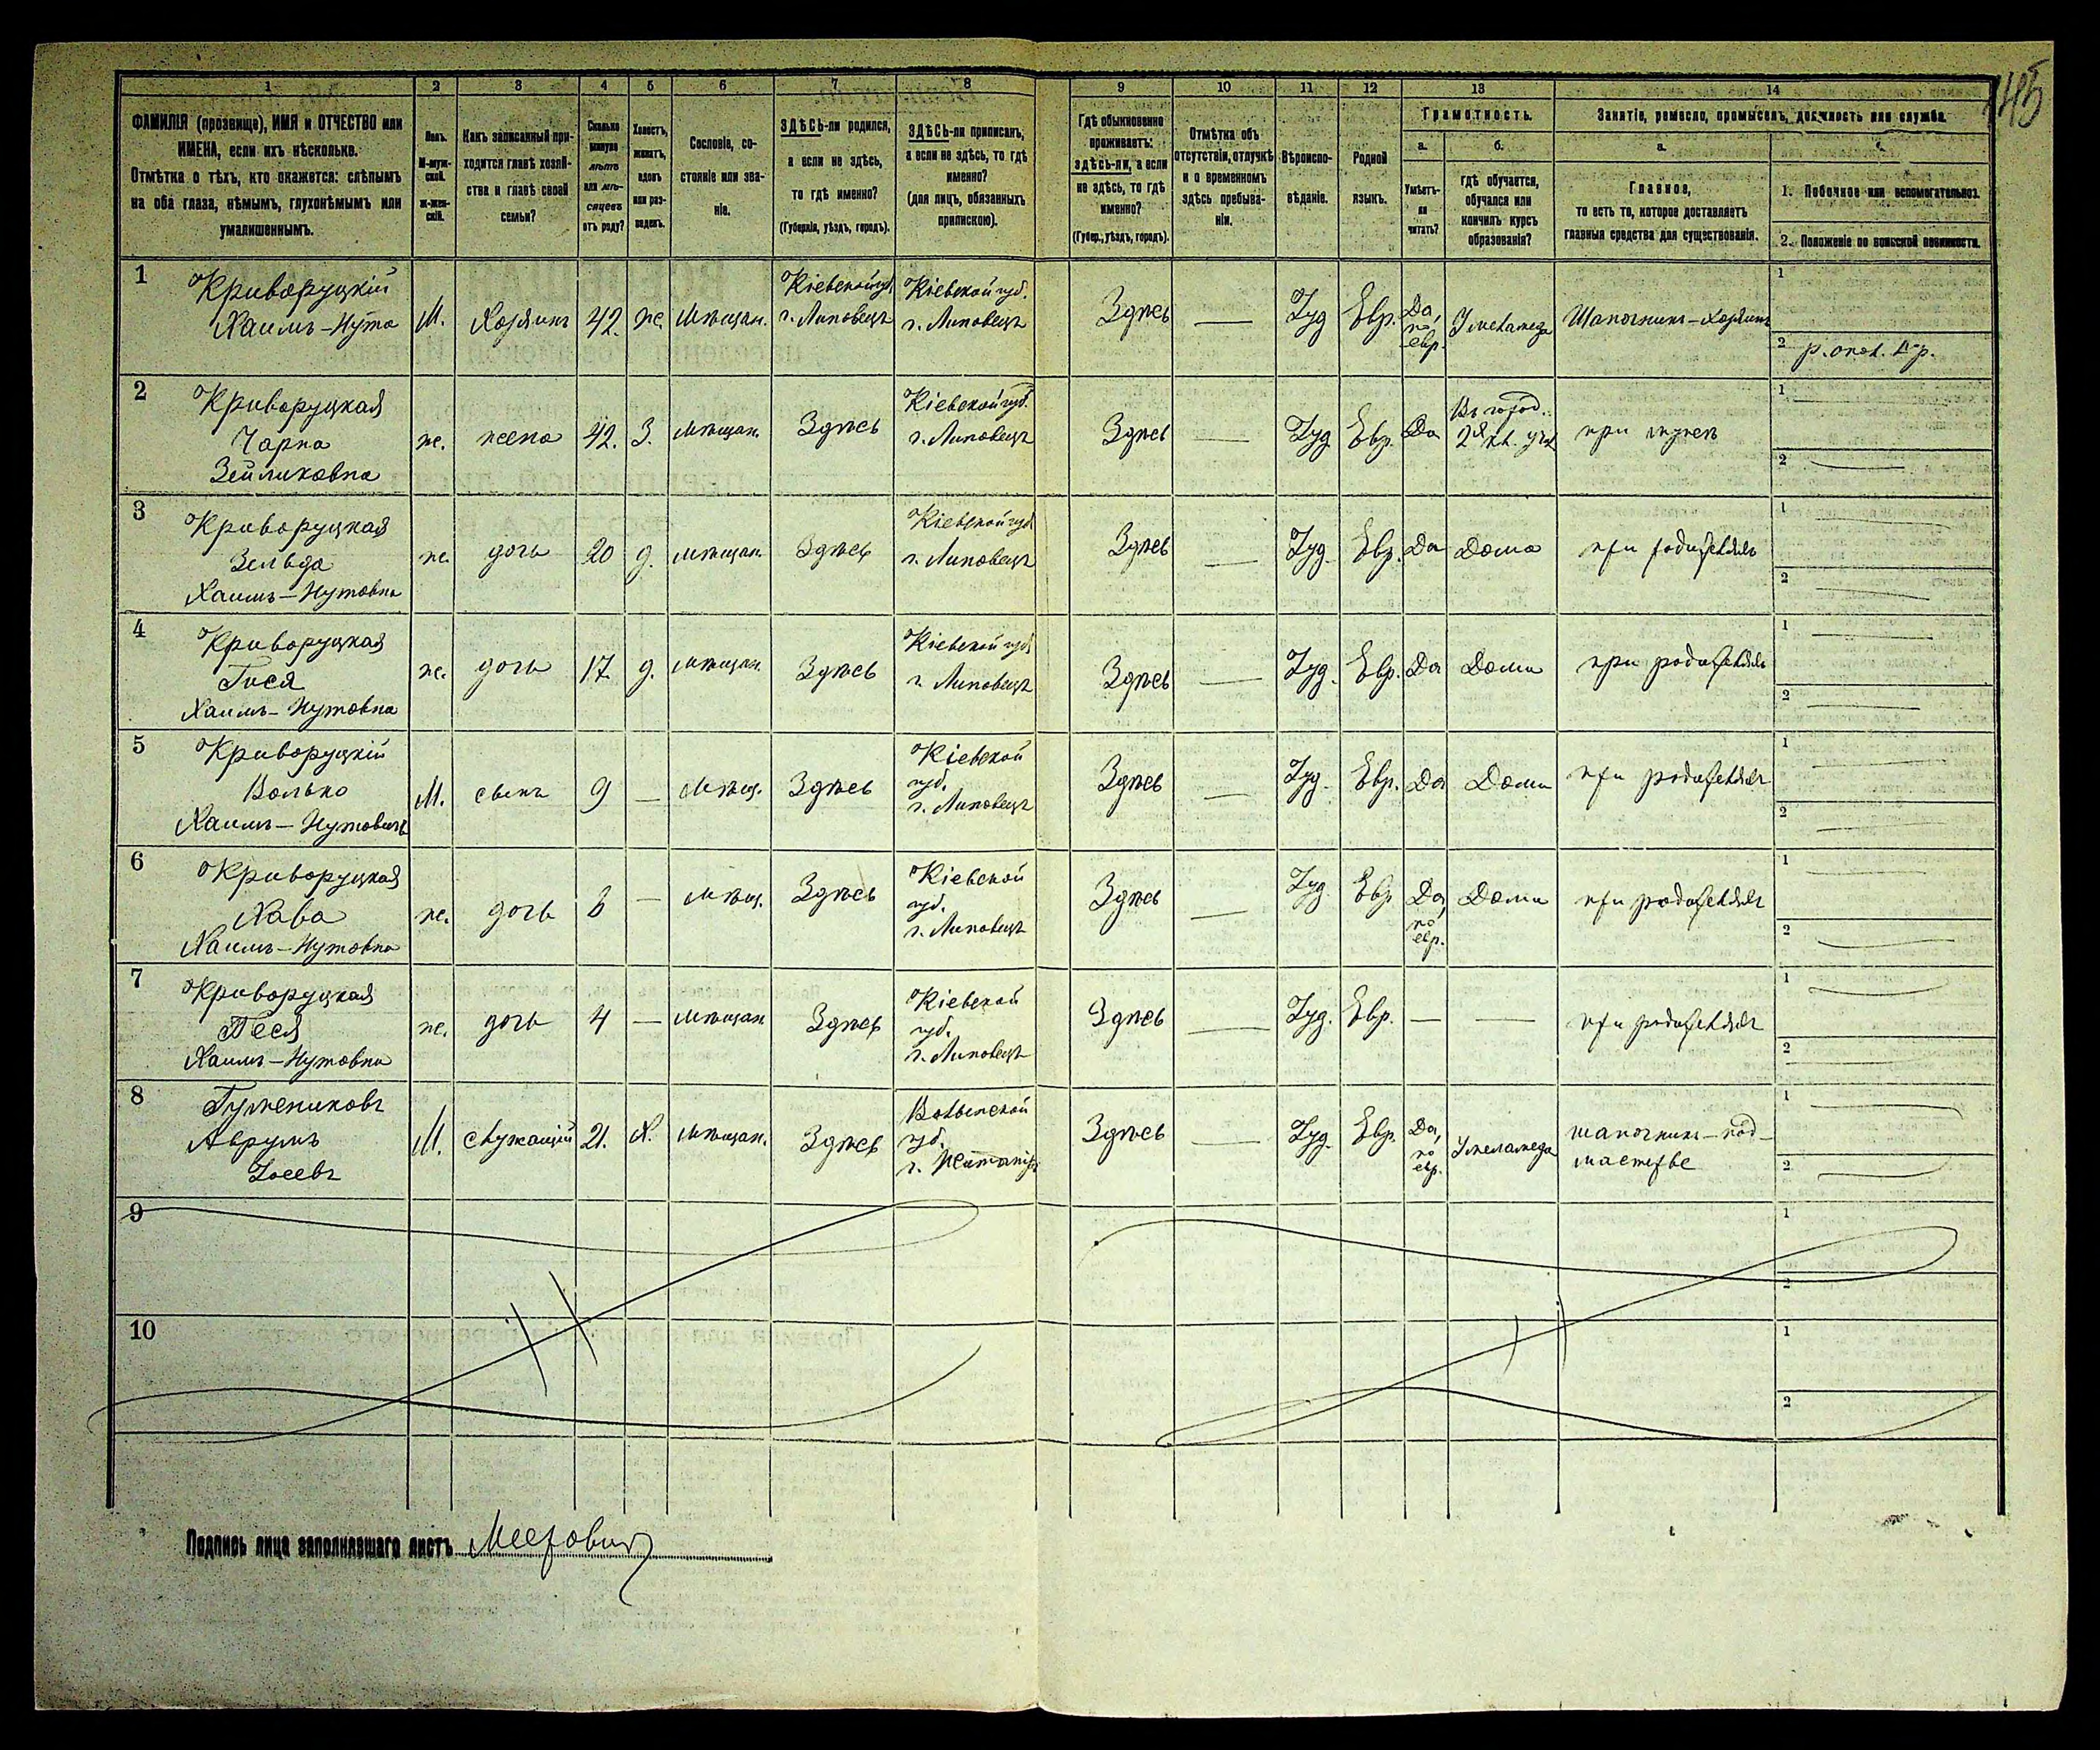 145
1 2 3 4 5 6 7 8 9 10 11 12 13 14
ФАМИЛІЯ (прозвище), ИМЯ и ОТЧЕСТВО или
ИМЕНА, если ихъ нѣсколько.
Отмѣтка о тѣхъ, кто окажется: слѣпымъ
на оба глаза, нѣмымъ, глухонѣмымъ или
умалишеннымъ.
Полъ.
М-муж-
ской.
ж-жен-
скій.
Какъ записанный при-
ходится главѣ хозяй-
ства и главѣ своей
семьи?
Сколько
минуло
лѣтъ
или мѣ-
сяцевъ
отъ роду?
Холостъ,
женатъ,
вдовъ
или раз-
веденъ.
Сословіе, со-
стояніе или зва-
ніе.
ЗДѢСЬ-ли родился,
а если не здѣсь,
то гдѣ именно?
(Губернія, уѣздъ, городъ).
ЗДѢСЬ-ли приписанъ,
а если не здѣсь, то гдѣ
именно?
(для лицъ, обязанныхъ
припискою).
Гдѣ обыкновенно
проживаетъ:
здѣсь-ли, а если
не здѣсь, то гдѣ
именно?
(Губер., уѣздъ, городъ).
Отмѣтка объ
отсутствіи, отлучкѣ
и о временномъ
здѣсь пребыва-
ніи.
Вѣроиспо-
вѣданіе.
Родной
языкъ.
Грамотность.
а.
Умѣетъ-
ли
читать?
б.
гдѣ обучается,
обучался или
кончилъ курсъ
образованія?
Занятіе, ремесло, промыселъ, должность или служба.
а.
Главное,
то есть то, которое доставляетъ
главныя средства для существованія.
1. Побочное или вспомогательное.
2. Положеніе по воинской повинности.
1
Криворуцкій
Хаимъ-Нута
М. Хозяинъ 42. ж. Мѣщан.
Кіевской губ.
г. Липовецъ
Кіевской губ.
г. Липовецъ
Здѣсь — Іуд Евр.
Да,
по
евр.
У меламеда
Шапочникъ-хозяинъ
1
2
2
Криворуцкая
Чарна
Зейликовна
ж. жена 42. З. мѣщан. Здѣсь
Кіевской губ.
г. Липовецъ
Здѣсь — Іуд Евр. Да
Въ город.
2х кл. уч.
при мужѣ
1
2 —
3
Криворуцкая
Зельда
Хаимъ-Нутовна
ж. дочь 20 д. мѣщан. Здѣсь
Кіевской губ
г. Липовецъ
Здѣсь — Іуд. Евр. Да Дома при родителяхъ
1 —
2 —
4
Криворуцкая
Гися
Хаимъ-Нутовна
ж. дочь 17. д. мѣщан. Здѣсь
Кіевской губ
г. Липовецъ
Здѣсь — Іуд. Евр. Да Дома при родителяхъ
1 —
2 —
5
Криворуцкій
Волько
Хаимъ-Нутовичъ
М. сынъ 9 — Мѣщ. Здѣсь
Кіевской
губ.
г. Липовецъ
Здѣсь — Іуд. Евр. Да Дома при родителяхъ
1 —
2 —
6
Криворуцкая
Хава
Хаимъ-Нутовна
ж. дочь 6 — мѣщ. Здѣсь
Кіевской
губ.
г. Липовецъ
Здѣсь — Іуд. Евр
Да,
по
евр.
Дома при родителяхъ
1 —
2 —
7
Криворуцкая
Песя
Хаимъ-Нутовна
ж. дочь 4 — мѣщан. Здѣсь
Кіевской
губ.
г. Липовецъ
Здѣсь — Іуд. Евр. — — при родителяхъ
1 —
2 —
8
Гумениковъ
Аврумъ
Іосевъ
М. служащій 21. Х. мѣщан. Здѣсь
Волынской
губ.
г. Житоміръ
Здѣсь — Іуд. Евр.
Да,
по
евр.
У меламеда
шапочникъ-под-
мастерье
1 —
2 —
9
1
2
10
1
2
Подпись лица заполнявшаго листъ Меерович